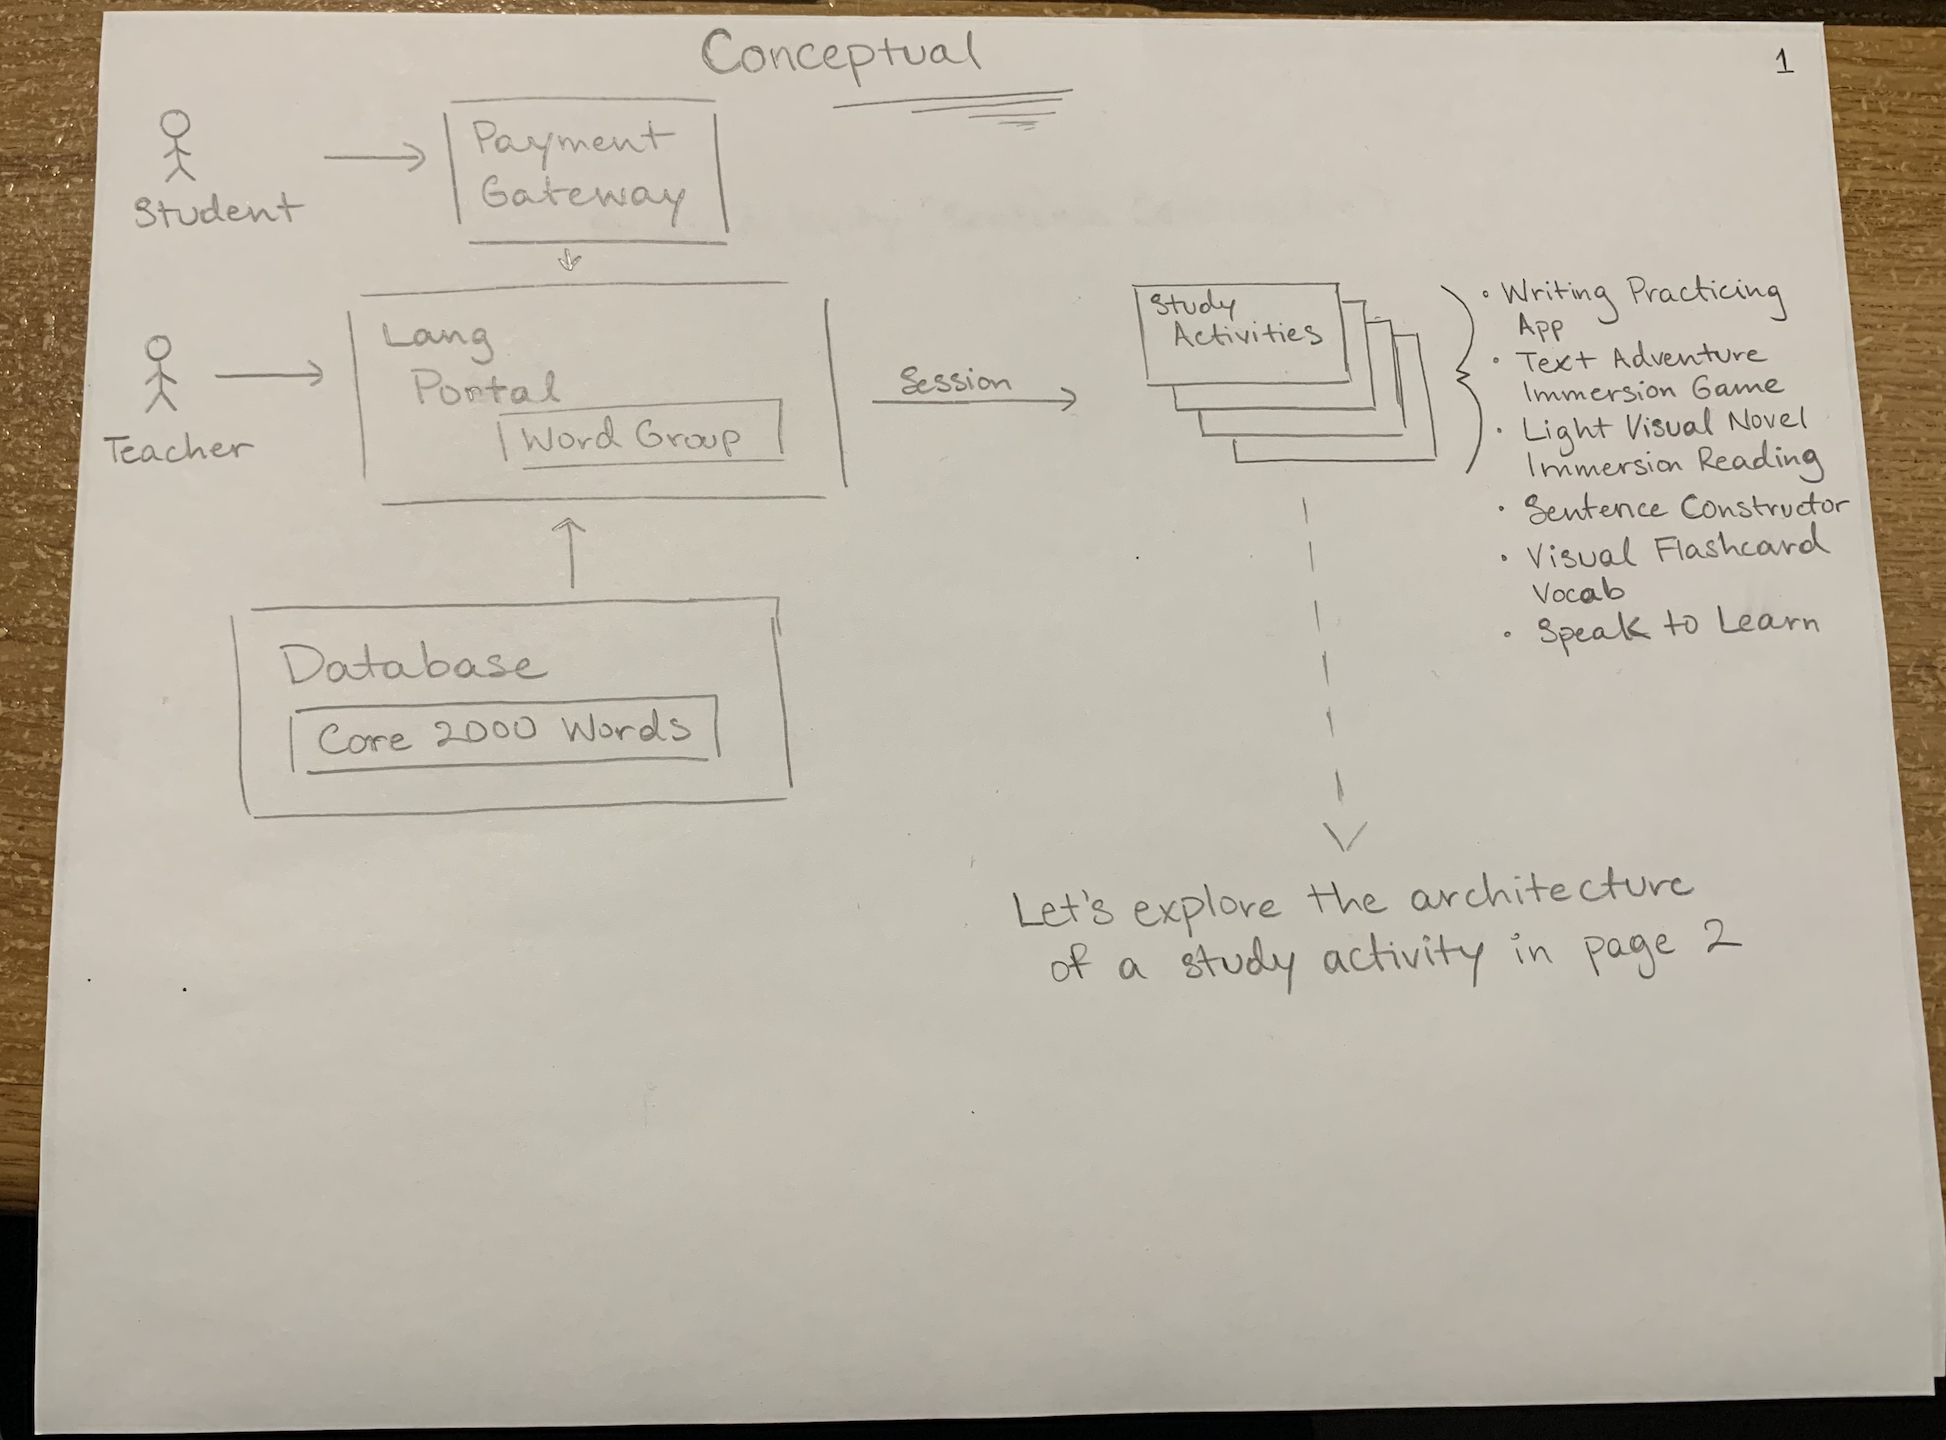 Conceptual
1
Student
Payment
Gateway
Teacher
Lang
Portal
Word Group
Session
Study
Activities
• Writing Practicing
App
• Text Adventure
Immersion Game
• Light Visual Novel
Immersion Reading
• Sentence Constructor
• Visual Flashcard
Vocab
• Speak to Learn
Database
Core 2000 Words
Let's explore the architecture
of a study activity in page 2